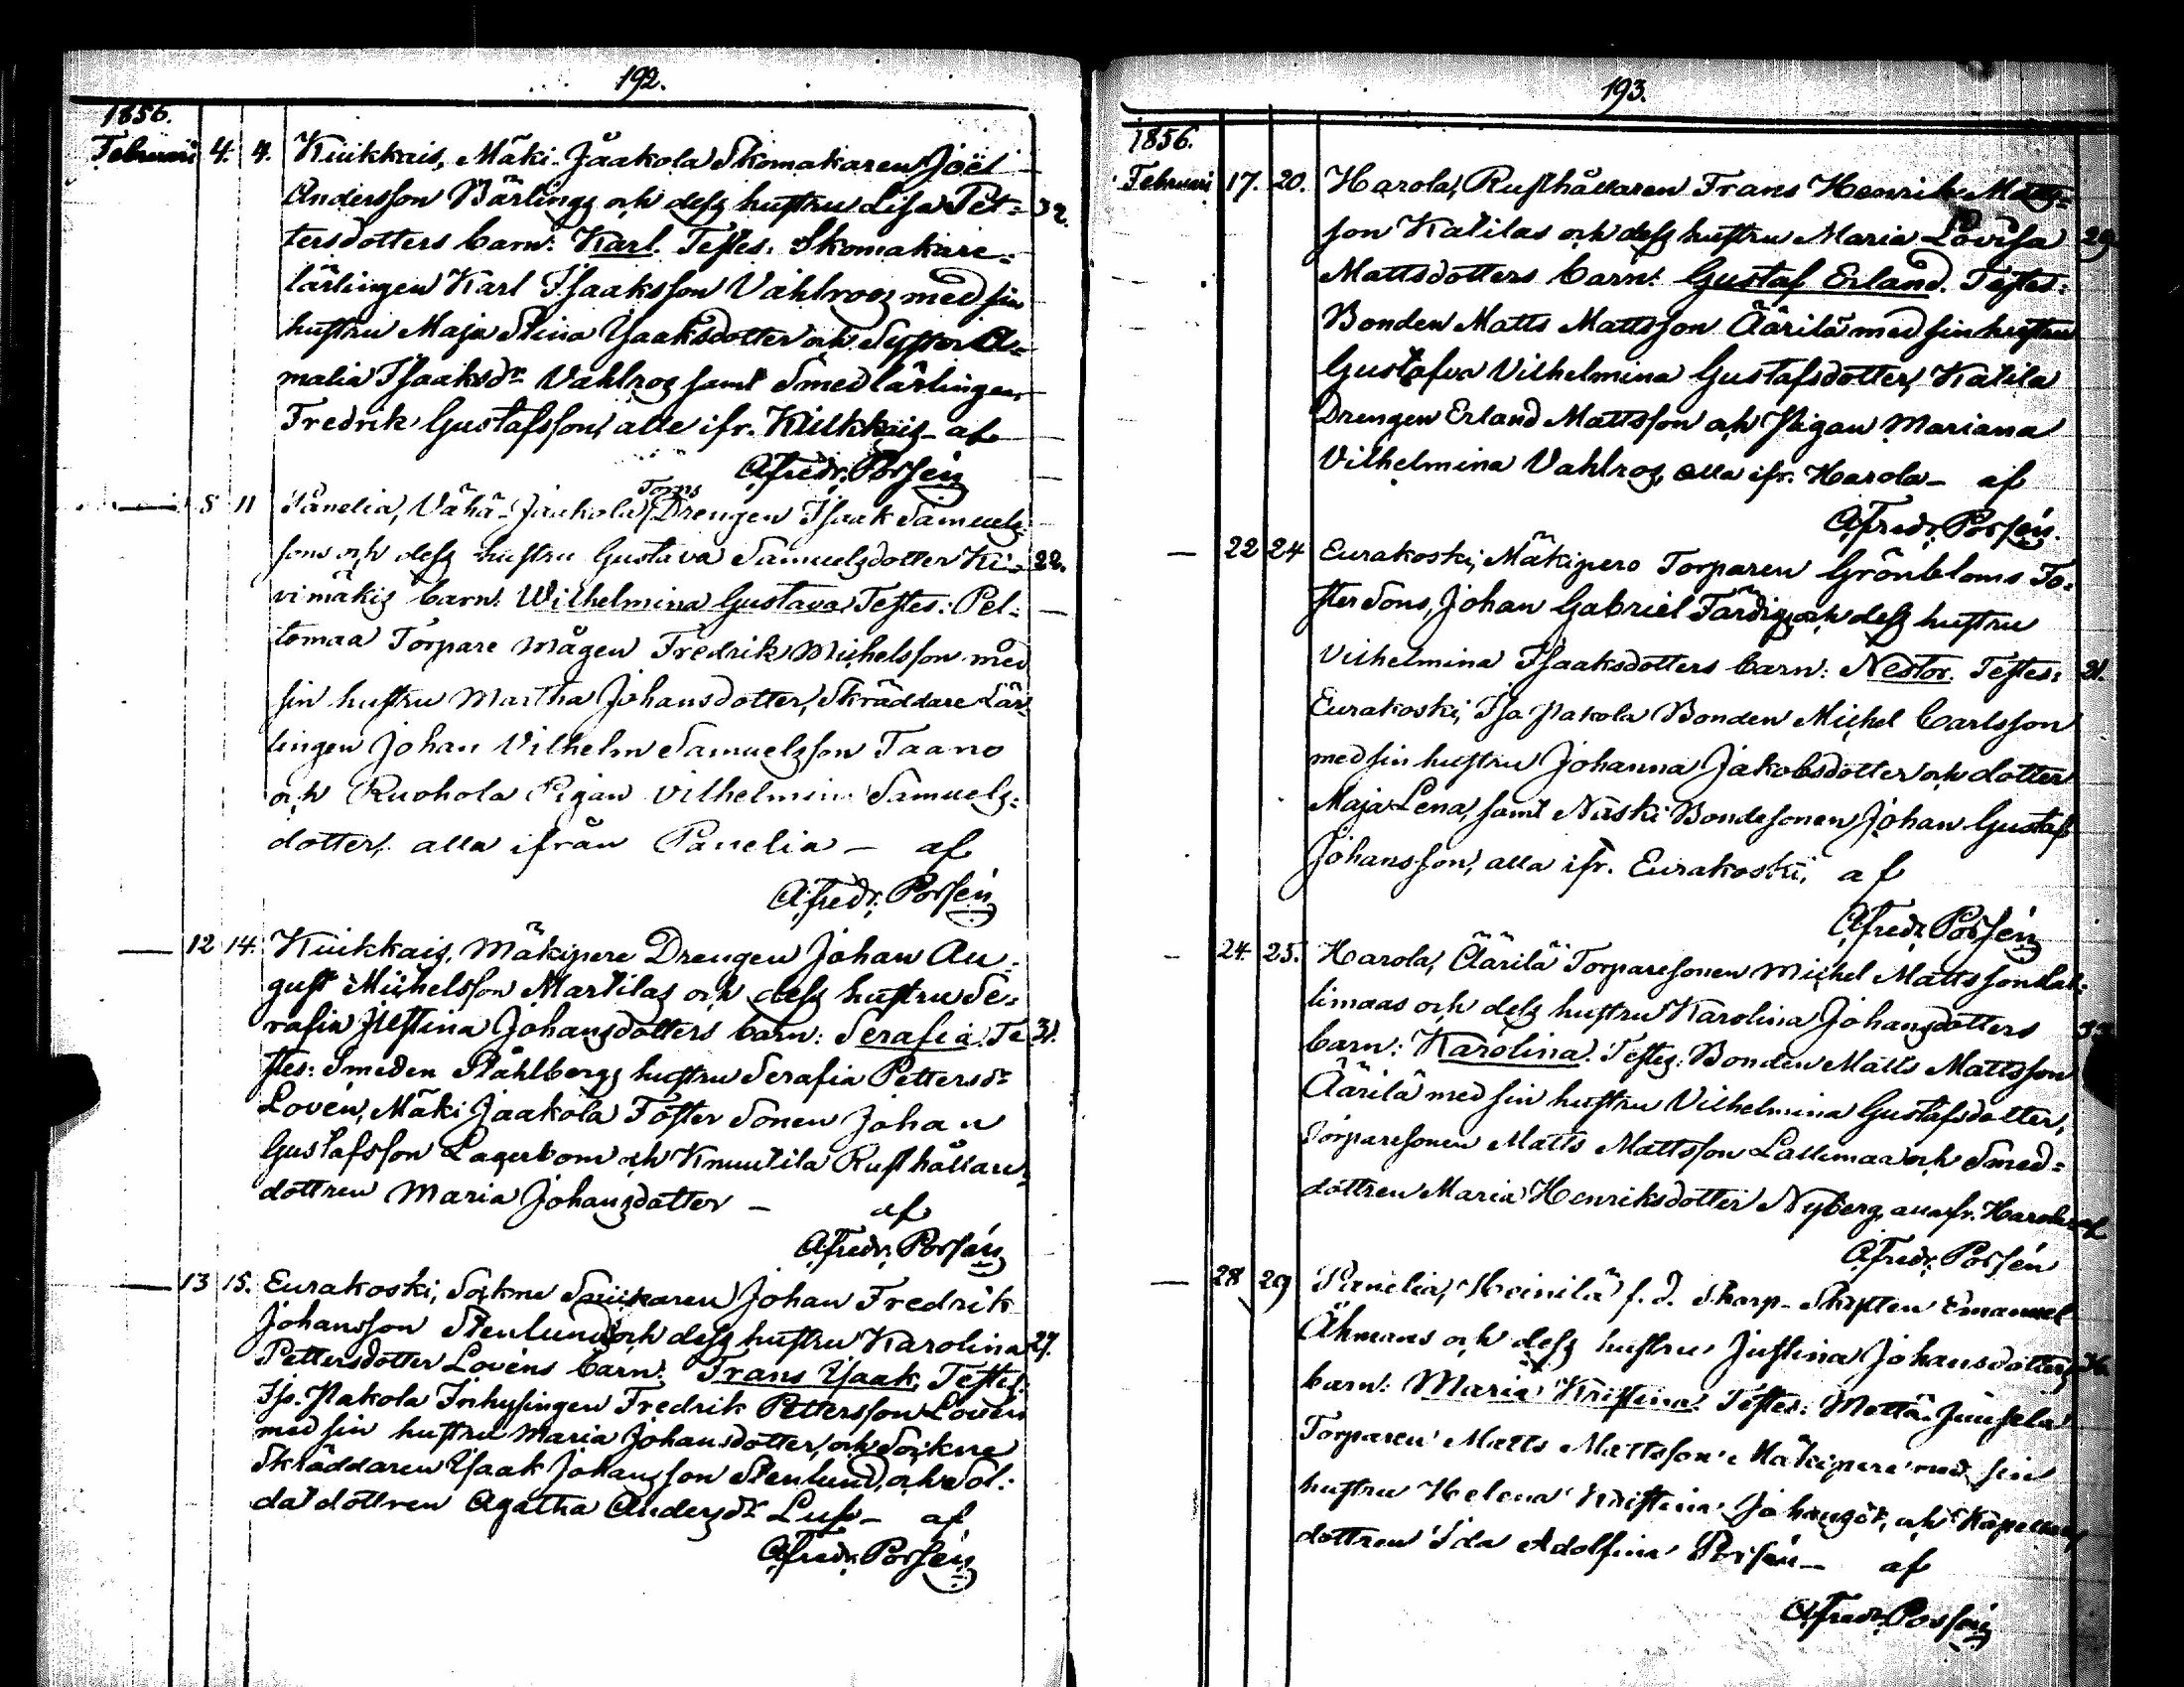 192.
1856.
Februari 4. 4. Kiukkais, Mäki-Jaakola Skomakaren Joël
Andersson Bärlings och dess hustru Lisa Pet= 32.
tersdotters barn: Karl. Testes: Skomakare=
lärlingen Karl Isaaksson Vahlroos med sin
hustru Maja Stina Isaaksdotter och Syster A=
malia Isaaksdr Vahlros samt Smedlärlingen
Fredrik Gustafsson, alle ifr. Kiukkais - af
A. Fredr. Porsén
5 11 Panelia, Vähä-Jaakola Torps Drengen Isaak Samuels
sons och dess hustru Gustava Samuelsdotter Ki= 22.
vimäkis barn: Wilhelmina Gustava. Testes: Pel=
tomaa Torpare mågen Fredrik Michelsson med
sin hustru Martha Johansdotter, Skräddare Lär
lingen Johan Vilhelm Samuelsson Taano
och Ruohola Pigan Vilhelmina Samuels=
dotter, alla ifrån Panelia - af
A. Fredr. Porsén
12 14. Kiukkais, Mäkipere Drengen Johan Au=
gust Michelsson Martilas och dess hustru Se=
rafia Justina Johansdotters barn: Serafia. Te 31.
stes: Smeden Ståhlbergs hustru Serafia Pettersdr
Lovén, Mäki Jaakola Foster Sonen Johan
Gustafsson Lagerbom och Knuutila Rusthållare
dottren Maria Johansdotter - af
A. Fredr. Porsén
13 15. Eurakoski, Sokne Snickaren Johan Fredrik
Johansson Stenlunds och dess hustru Karolina 27.
Pettersdotter Lovéns barn: Frans Isaak. Testes:
Iso-Pakola Inhysingen Fredrik Pettersson Lovén
med sin hustru Maria Johansdotter, och Sokne
Skräddaren Isaak Johansson Stenlund, och Sol=
dat dottren Agatha Andersdr - af
A. Fredr. Porsén
193.
1856.
Februari 17. 20. Harola, Rusthållaren Frans Henrik Matts=
son Katilas och dess hustru Maria Lovisa 29
Mattsdotters barn: Gustaf Erland. Testes:
Bonden Matts Mattsson Äärilä med sin hustru
Gustafva Vilhelmina Gustafsdotter, Katila
Drengen Erland Mattsson och Pigan Mariana
Vilhelmina Vahlros, alla ifr. Harola - af
A. Fredr. Porsén.
22 24 Eurakoski, Mäkipere Torparen Grönbloms Fo=
ster Sons, Johan Gabriel Färdigs och dess hustru
Vilhelmina Isaaksdotters barn: Nestor. Testes: 31.
Eurakoski, Iso Pakola Bonden Michel Carlsson
med sin hustru Johanna Jakobsdotter och dotter
Maja Lena, samt Näski Bondesonen Johan Gustaf
Johansson, alla ifr. Eurakoski, af
A. Fredr. Porsén
24. 25. Harola, Äärilä Torparesonen Michel Mattsson Lal=
limaas och dess hustru Karolina Johansdotters
barn: Karolina. Testes: Bonden Matts Mattsson
Äärilä med sin hustru Vilhelmina Gustafsdotter,
Torparesonen Matts Mattsson Lallimaa och Smed=
dottren Maria Henriksdotter Nyberg, alla fr. Harola af
A. Fredr. Porsén
28 29 Panelia, Heinilä f. d. Skarp-Skytten Emanuel
Åhmans och dess hustru Justina Johansdotters
barn: Maria Kristina. Testes: Mettä-Juusela
Torparen Matts Mattsson Mäkipere med sin
hustru Helena Kristina Johansdr, och Kapellans
dottren Ida Adolfina Porsén - af
A. Fredr. Porsén